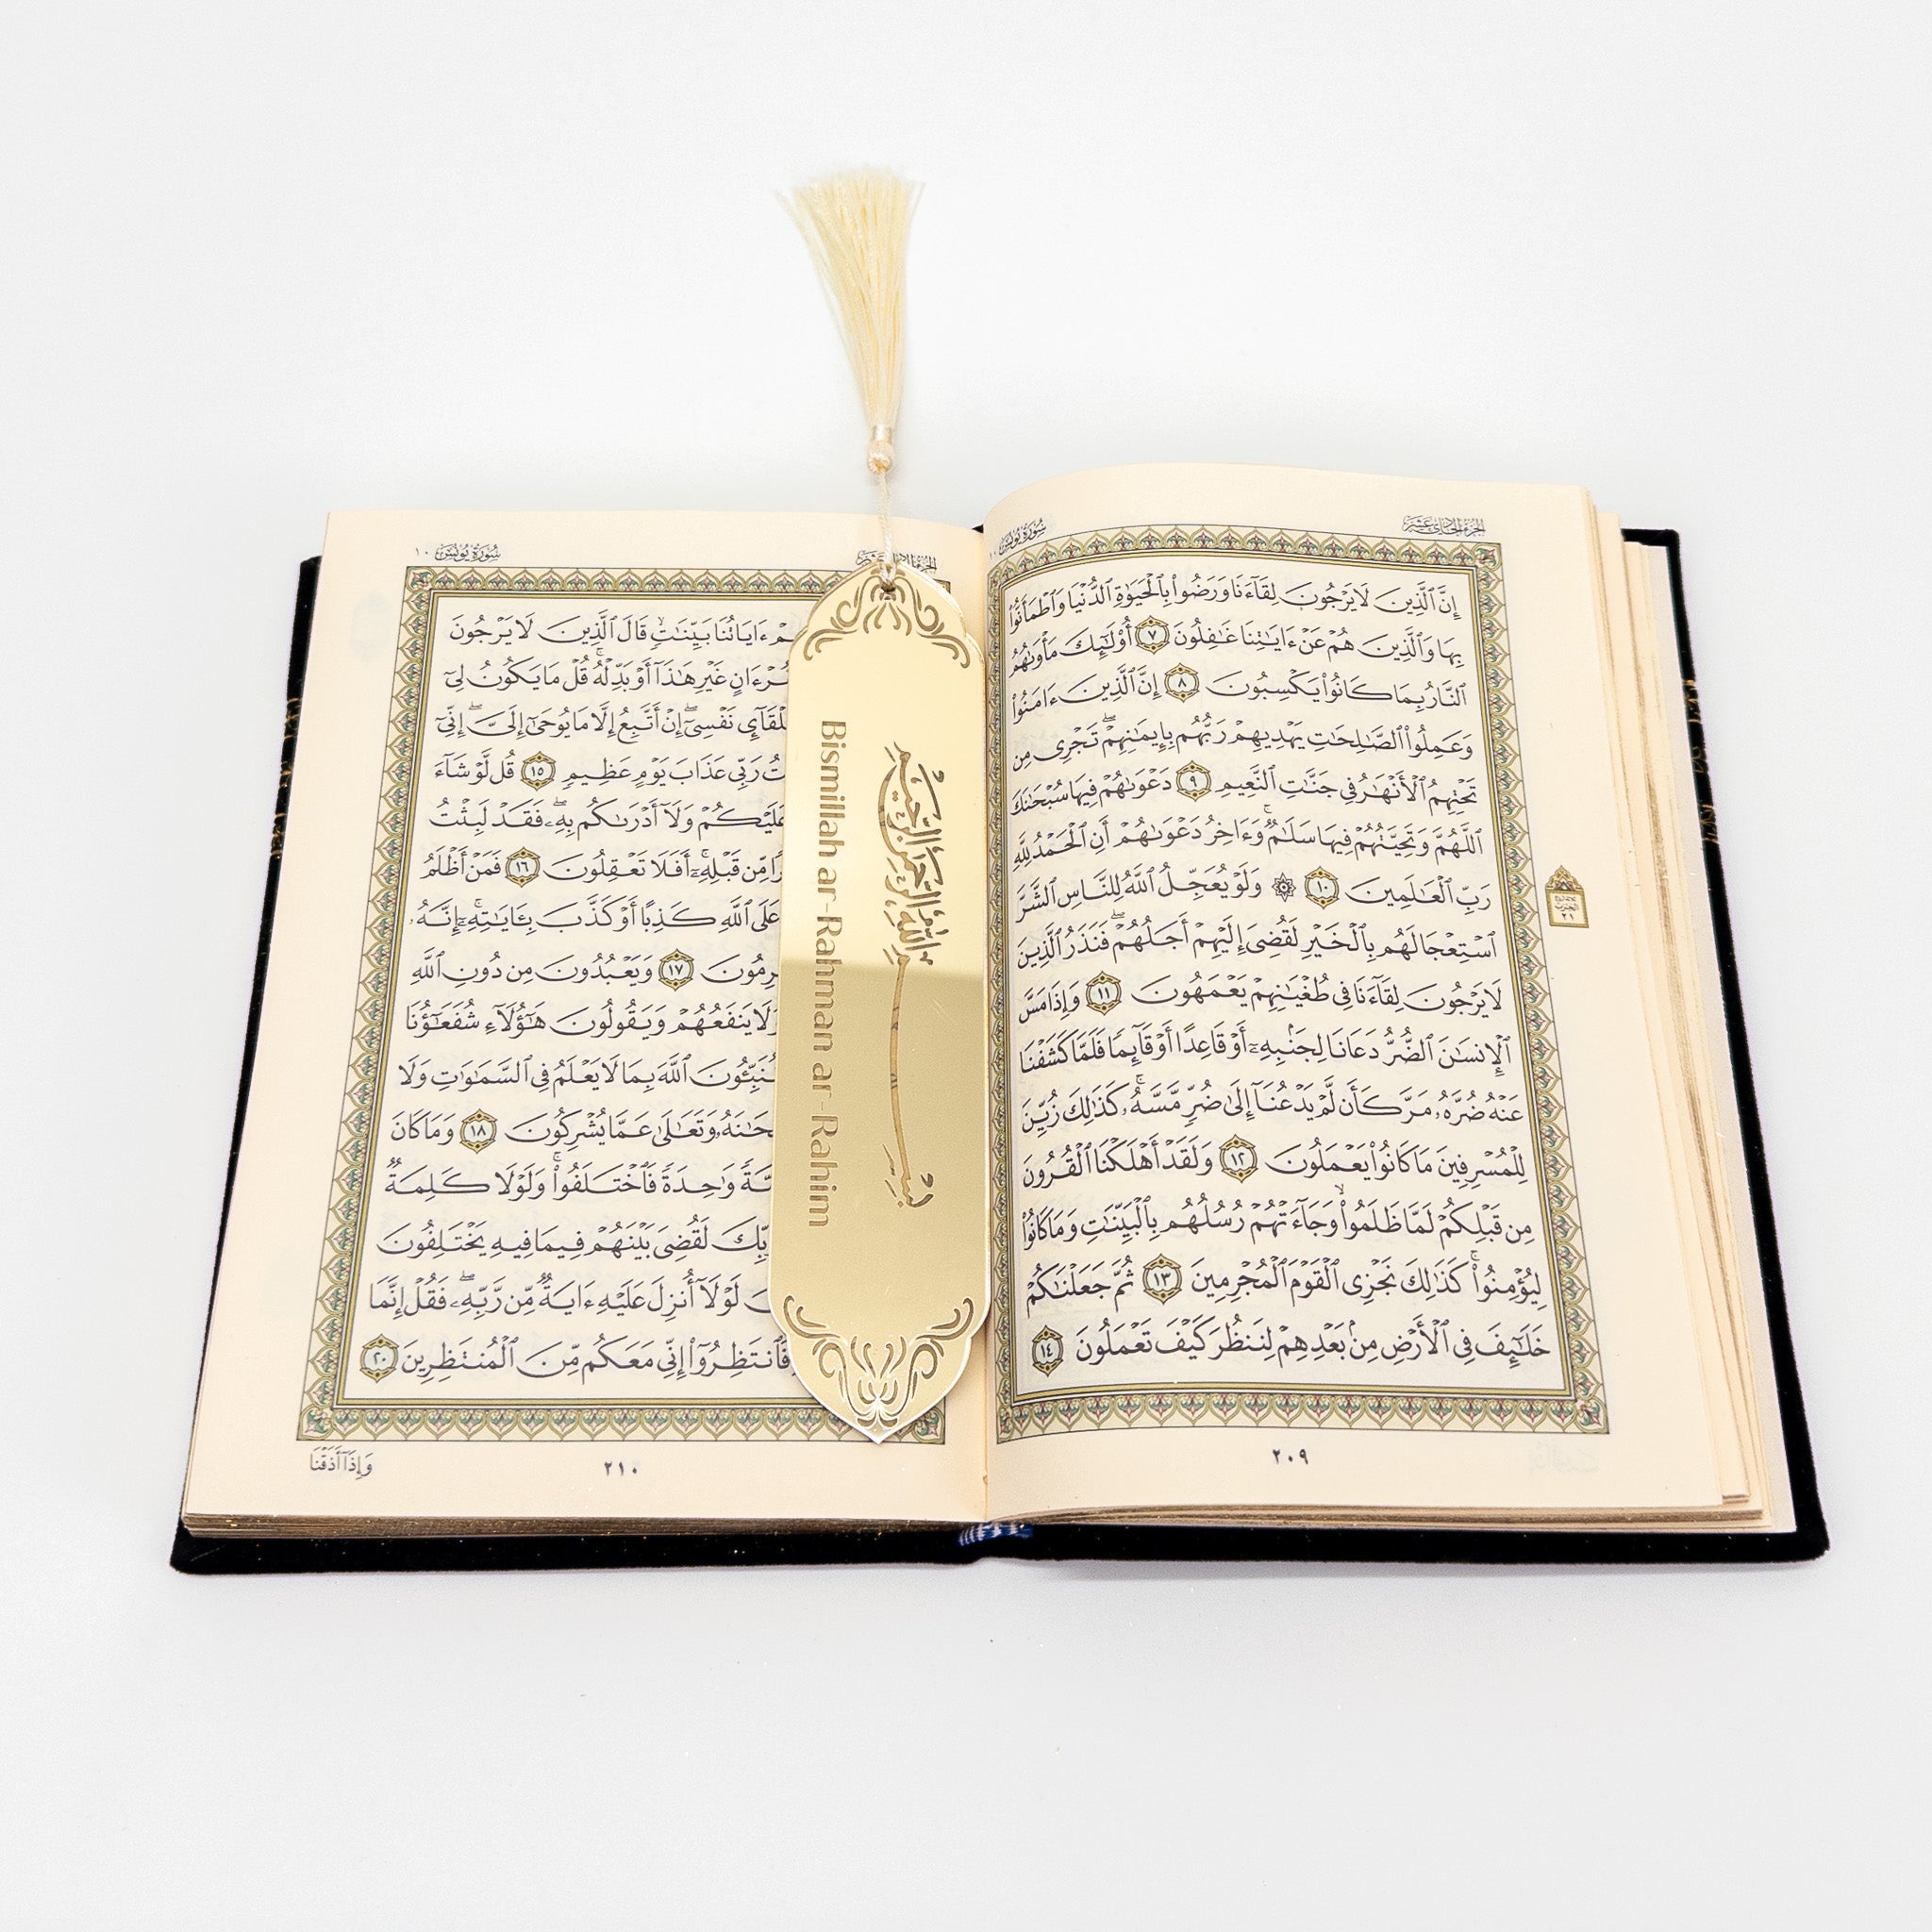 سُورَةُ يُونُسَ
الجُزْءُ الحَادِيَ عَشَرَ
إِنَّ ٱلَّذِينَ لَا يَرۡجُونَ لِقَآءَنَا وَرَضُواْ بِٱلۡحَيَوٰةِ ٱلدُّنۡيَا وَٱطۡمَأَنُّواْ
بِهَا وَٱلَّذِينَ هُمۡ عَنۡ ءَايَٰتِنَا غَٰفِلُونَ ٧ أُوْلَٰٓئِكَ مَأۡوَىٰهُمُ
ٱلنَّارُ بِمَا كَانُواْ يَكۡسِبُونَ ٨ إِنَّ ٱلَّذِينَ ءَامَنُواْ
وَعَمِلُواْ ٱلصَّٰلِحَٰتِ يَهۡدِيهِمۡ رَبُّهُم بِإِيمَٰنِهِمۡۖ تَجۡرِي مِن
تَحۡتِهِمُ ٱلۡأَنۡهَٰرُ فِي جَنَّٰتِ ٱلنَّعِيمِ ٩ دَعۡوَىٰهُمۡ فِيهَا سُبۡحَٰنَكَ
ٱللَّهُمَّ وَتَحِيَّتُهُمۡ فِيهَا سَلَٰمٞۚ وَءَاخِرُ دَعۡوَىٰهُمۡ أَنِ ٱلۡحَمۡدُ لِلَّهِ
رَبِّ ٱلۡعَٰلَمِينَ ١٠ ۞ وَلَوۡ يُعَجِّلُ ٱللَّهُ لِلنَّاسِ ٱلشَّرَّ
ٱسۡتِعۡجَالَهُم بِٱلۡخَيۡرِ لَقُضِيَ إِلَيۡهِمۡ أَجَلُهُمۡۖ فَنَذَرُ ٱلَّذِينَ
لَا يَرۡجُونَ لِقَآءَنَا فِي طُغۡيَٰنِهِمۡ يَعۡمَهُونَ ١١ وَإِذَا مَسَّ
ٱلۡإِنسَٰنَ ٱلضُّرُّ دَعَانَا لِجَنۢبِهِۦٓ أَوۡ قَاعِدًا أَوۡ قَآئِمٗا فَلَمَّا كَشَفۡنَا
عَنۡهُ ضُرَّهُۥ مَرَّ كَأَن لَّمۡ يَدۡعُنَآ إِلَىٰ ضُرّٖ مَّسَّهُۥۚ كَذَٰلِكَ زُيِّنَ
لِلۡمُسۡرِفِينَ مَا كَانُواْ يَعۡمَلُونَ ١٢ وَلَقَدۡ أَهۡلَكۡنَا ٱلۡقُرُونَ
مِن قَبۡلِكُمۡ لَمَّا ظَلَمُواْۙ وَجَآءَتۡهُمۡ رُسُلُهُم بِٱلۡبَيِّنَٰتِ وَمَا كَانُواْ
لِيُؤۡمِنُواْۚ كَذَٰلِكَ نَجۡزِي ٱلۡقَوۡمَ ٱلۡمُجۡرِمِينَ ١٣ ثُمَّ جَعَلۡنَٰكُمۡ
خَلَٰٓئِفَ فِي ٱلۡأَرۡضِ مِنۢ بَعۡدِهِمۡ لِنَنظُرَ كَيۡفَ تَعۡمَلُونَ ١٤
٢٠٩
سُورَةُ يُونُسَ ١٠
ءَايَاتُنَا بَيِّنَٰتٖ قَالَ ٱلَّذِينَ لَا يَرۡجُونَ
غَيۡرِ هَٰذَآ أَوۡ بَدِّلۡهُۚ قُلۡ مَا يَكُونُ لِيٓ
نَفۡسِيٓۖ إِنۡ أَتَّبِعُ إِلَّا مَا يُوحَىٰٓ إِلَيَّۖ إِنِّيٓ
رَبِّي عَذَابَ يَوۡمٍ عَظِيمٖ ١٥ قُل لَّوۡ شَآءَ
عَلَيۡكُمۡ وَلَآ أَدۡرَىٰكُم بِهِۦۖ فَقَدۡ لَبِثۡتُ
مِّن قَبۡلِهِۦٓۚ أَفَلَا تَعۡقِلُونَ ١٦ فَمَنۡ أَظۡلَمُ
عَلَى ٱللَّهِ كَذِبًا أَوۡ كَذَّبَ بِـَٔايَٰتِهِۦٓۚ إِنَّهُۥ
١٧ وَيَعۡبُدُونَ مِن دُونِ ٱللَّهِ
وَلَا يَنفَعُهُمۡ وَيَقُولُونَ هَٰٓؤُلَآءِ شُفَعَٰٓؤُنَا
ٱللَّهَ بِمَا لَا يَعۡلَمُ فِي ٱلسَّمَٰوَٰتِ وَلَا
وَتَعَٰلَىٰ عَمَّا يُشۡرِكُونَ ١٨ وَمَا كَانَ
وَٰحِدَةٗ فَٱخۡتَلَفُواْۚ وَلَوۡلَا كَلِمَةٞ
لَقُضِيَ بَيۡنَهُمۡ فِيمَا فِيهِ يَخۡتَلِفُونَ
لَوۡلَآ أُنزِلَ عَلَيۡهِ ءَايَةٞ مِّن رَّبِّهِۦۖ فَقُلۡ إِنَّمَا
فَٱنتَظِرُوٓاْ إِنِّي مَعَكُم مِّنَ ٱلۡمُنتَظِرِينَ ٢٠
وَإِذَآ أَذَقۡنَا
٢١٠
بسم الله الرحمن الرحيم
Bismillah ar-Rahman ar-Rahim